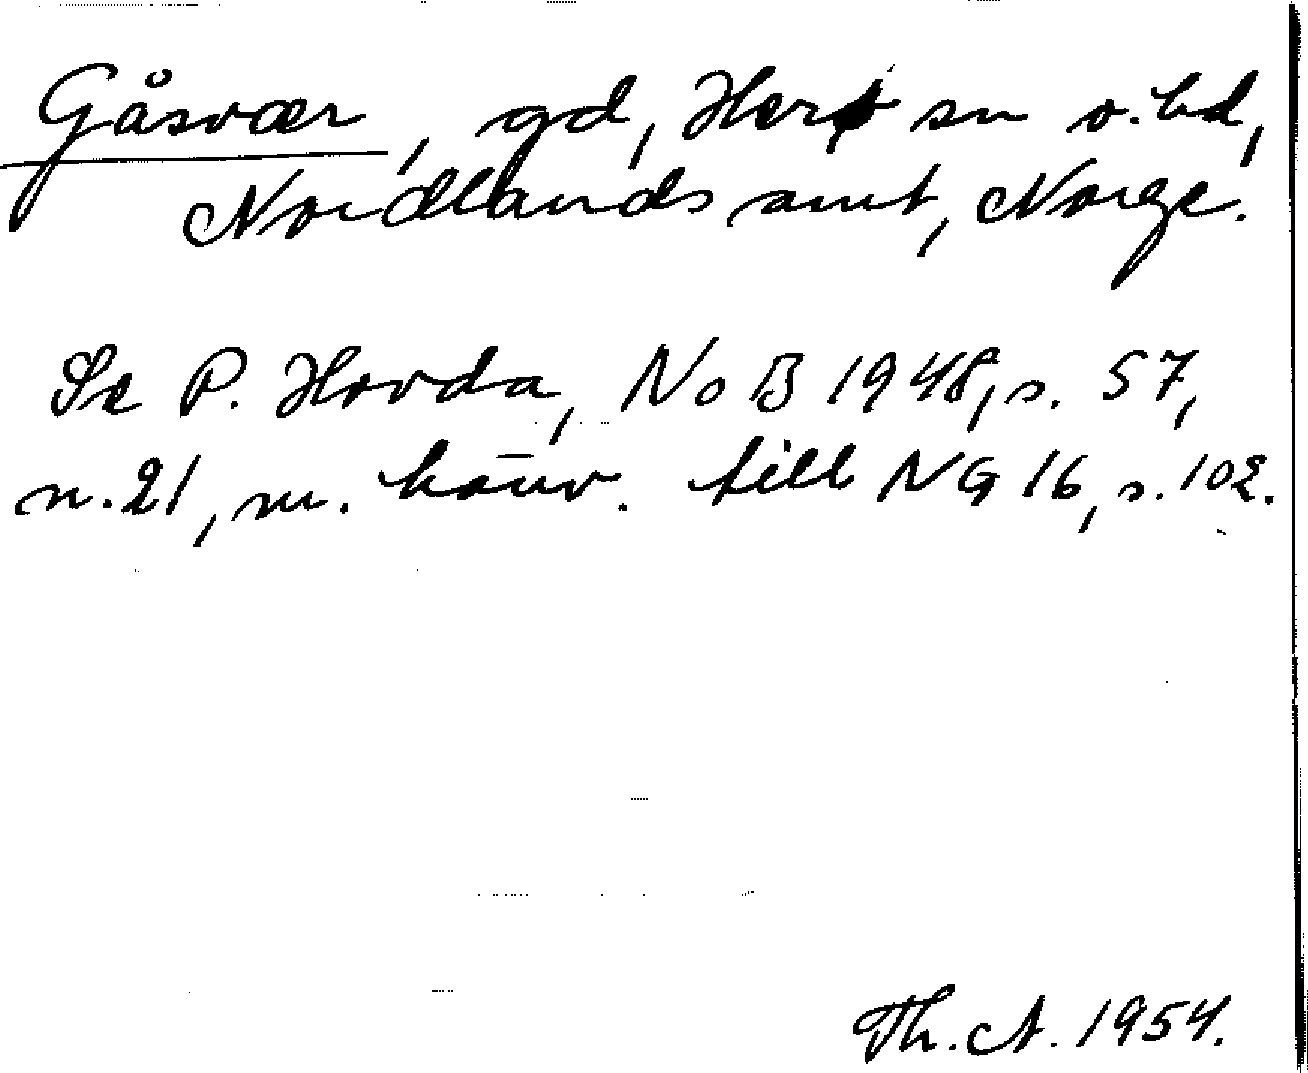 Gåsvær, gd, Herø sn o. hd,
Nordlands amt, Norge.
Se P. Hovda, NoB 1948, s. 57,
n. 21, m. hänv. till NG 16, s. 102.
Th. A. 1954.